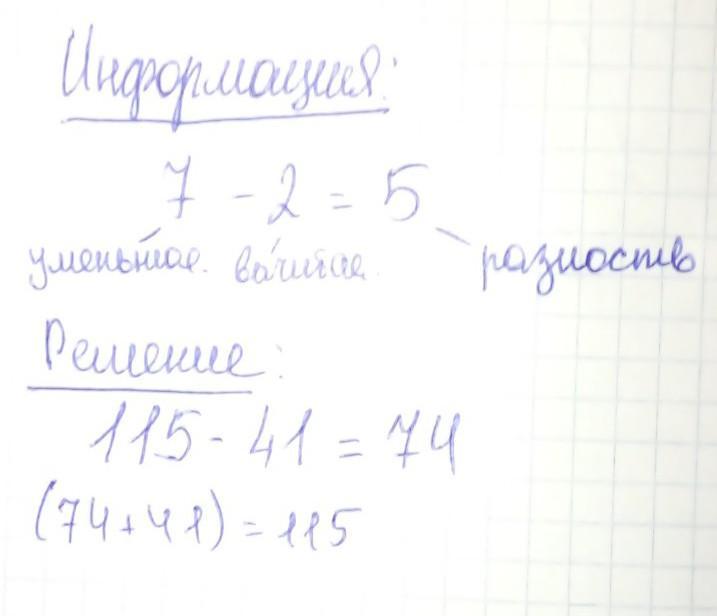 Информация:
7 - 2 = 5
уменьшае. вычитае. разность
Решение:
115 - 41 = 74
(74 + 41) = 115